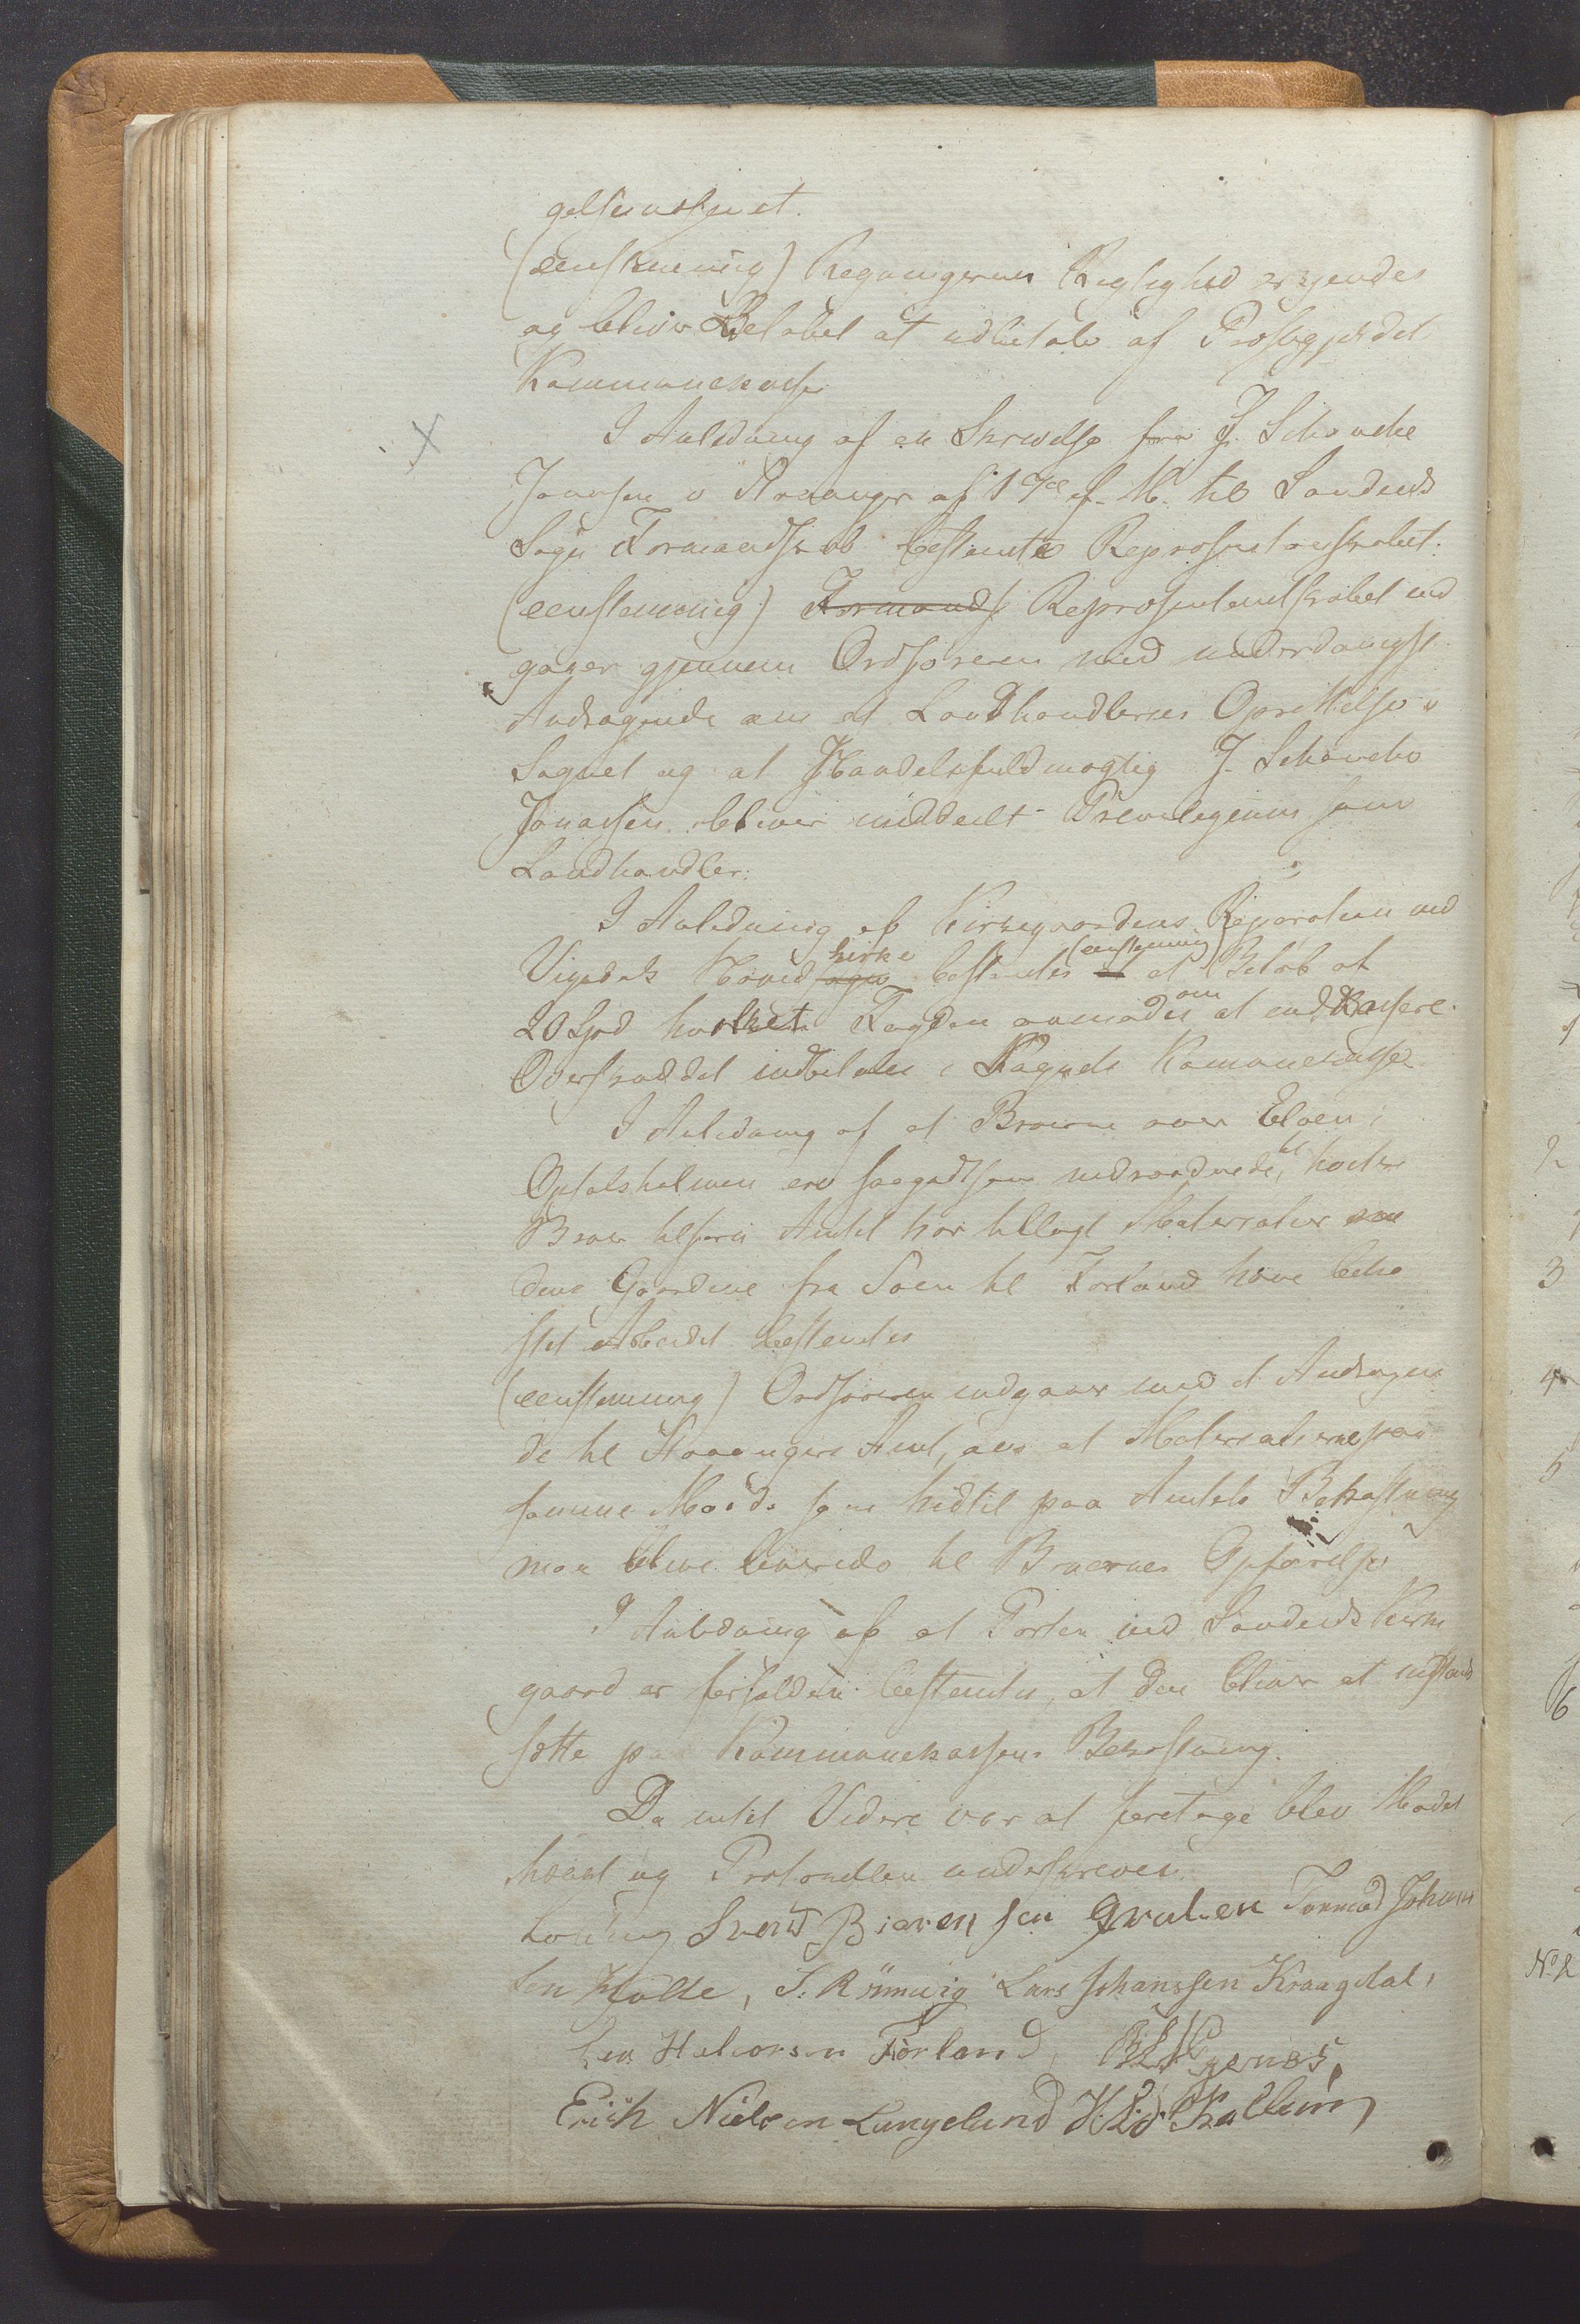 gelsesvæsenet.
(eenstemmig) Regningernes Rigtighed erkjendes
og bliver Beløbet at udbetale af Præstegjeldet
Kommunekasse
I Anledning af en Skrivelse fra J. Schancke
Jonassen i Stavanger af 1ste d. M. til Sandeids
Sogn Formandskab bestemte Repræsentantskabet:
(eenstemmig) Formands Repræsentantskabet ind
gaaer gjennem Ordføreren med underdanigst
Andragende om at Landhandleries Oprettelse i
Sognet og at Handelsfuldmægtig J. Schancke
Jonassen bliver meddeelt Privilegium som
Landhandler.
I Anledning af Kirkegaardens Reparation ved
Vigedals Hovedsogn kirke bestemtes (eenstemmig) at et Beløb at
20 Spd hvilket Fogden anmodes om at indkassere.
Overskuddet indbetales i Sognets Kommunekasse
I Anledning af at Broerne over Elven i
Opsalsholmen ere saagodtsom nedraadnede, til hvilke
Broer tilforn Amtet har tillagt Materialier me
dens Gaardene fra Søen til Førland have beko
stet Arbeidet bestemtes
(eenstemmig) Ordføreren indgaaer med et Andragen
de til Stavangers Amt, om at Materialierne paa
samme Maade som hidtil paa Amtets Bekostning
maa blive leverede til Broernes Opførelse
I Anledning af at Porten ved Sandeids Kirke
gaard er forfalden bestemtes, at den bliver at istand
sætte paa Kommunekassens Bekostning.
Da intet Videre var at foretage blev Mødet
hævet og Protocollen underskreven.
Svend Biørensen Gralen Tormod Johann
sen Hølle, S. Rønnevig Lars Johanssen Kraagdal,
Halvorsen Førland,
Erich Nielsen Langeland H. L. Skallum
X
2
3
4
5
6
No 2